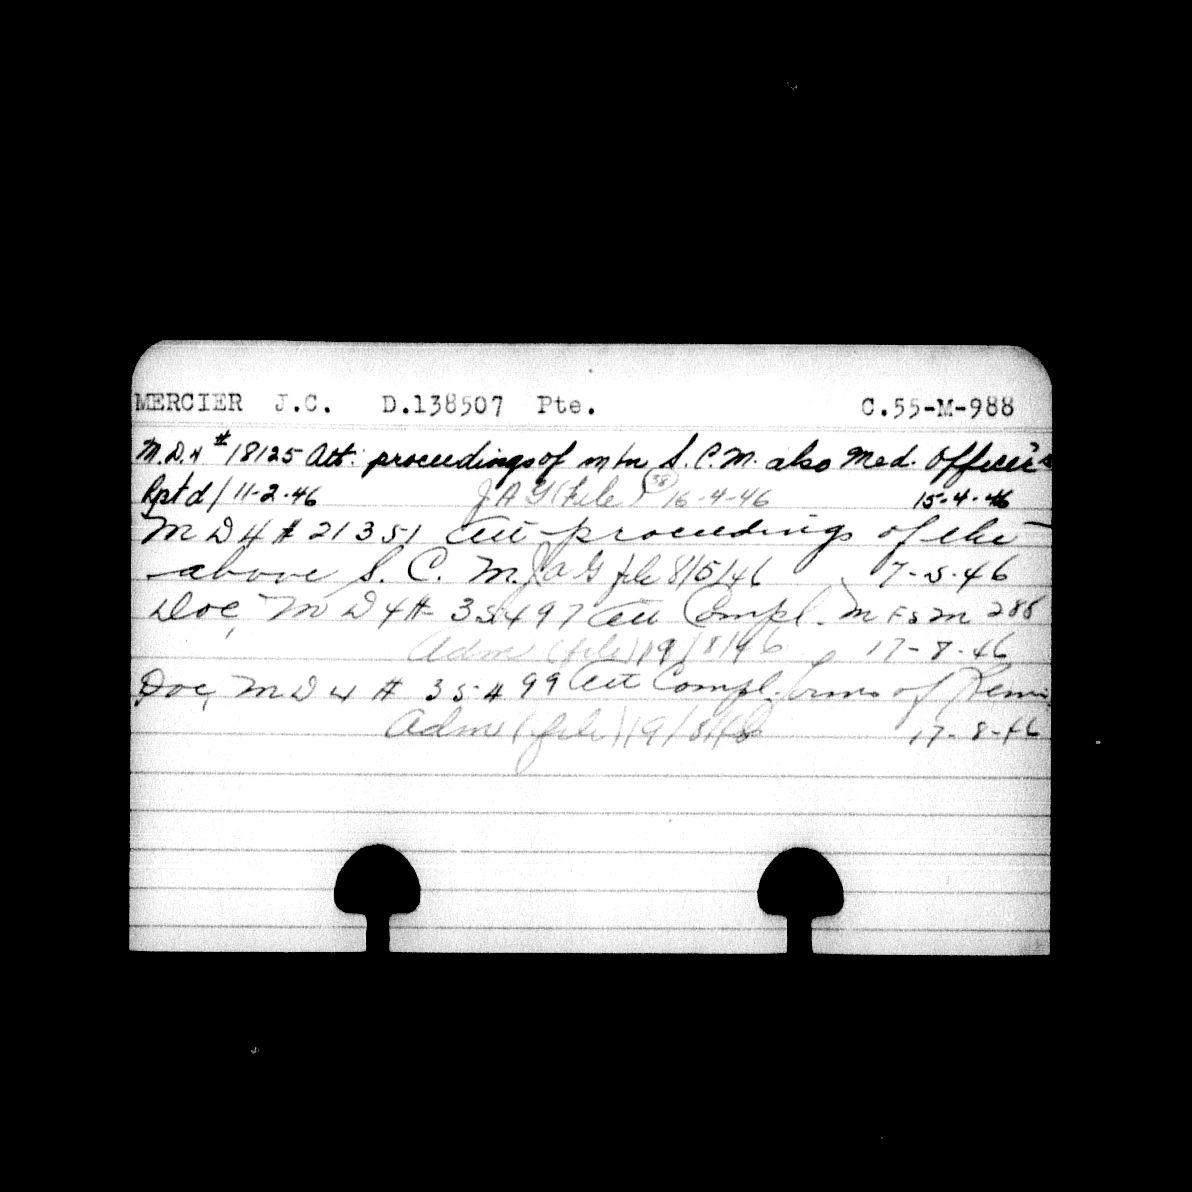 MERCIER J.C. D.138507 Pte. C.55-M-988
M.D.4 #18125 Att: proceedings of m/n S.C.M. also Med. Officer's
Rpt d/ 11-2-46 JAG (file) 38 16-4-46 15-4-46
M D 4 # 21351 Att proceedings of the
above S. C. M. JAG file 8/5/46 7-5-46
Doc, M D 4 # 35497 Att Compl. M F S M 286
Adm (file) 19/8/46 17-8-46
Doc, M D 4 # 35499 Att Compl. forms of Remis
Adm (file) 19/8/46 17-8-46